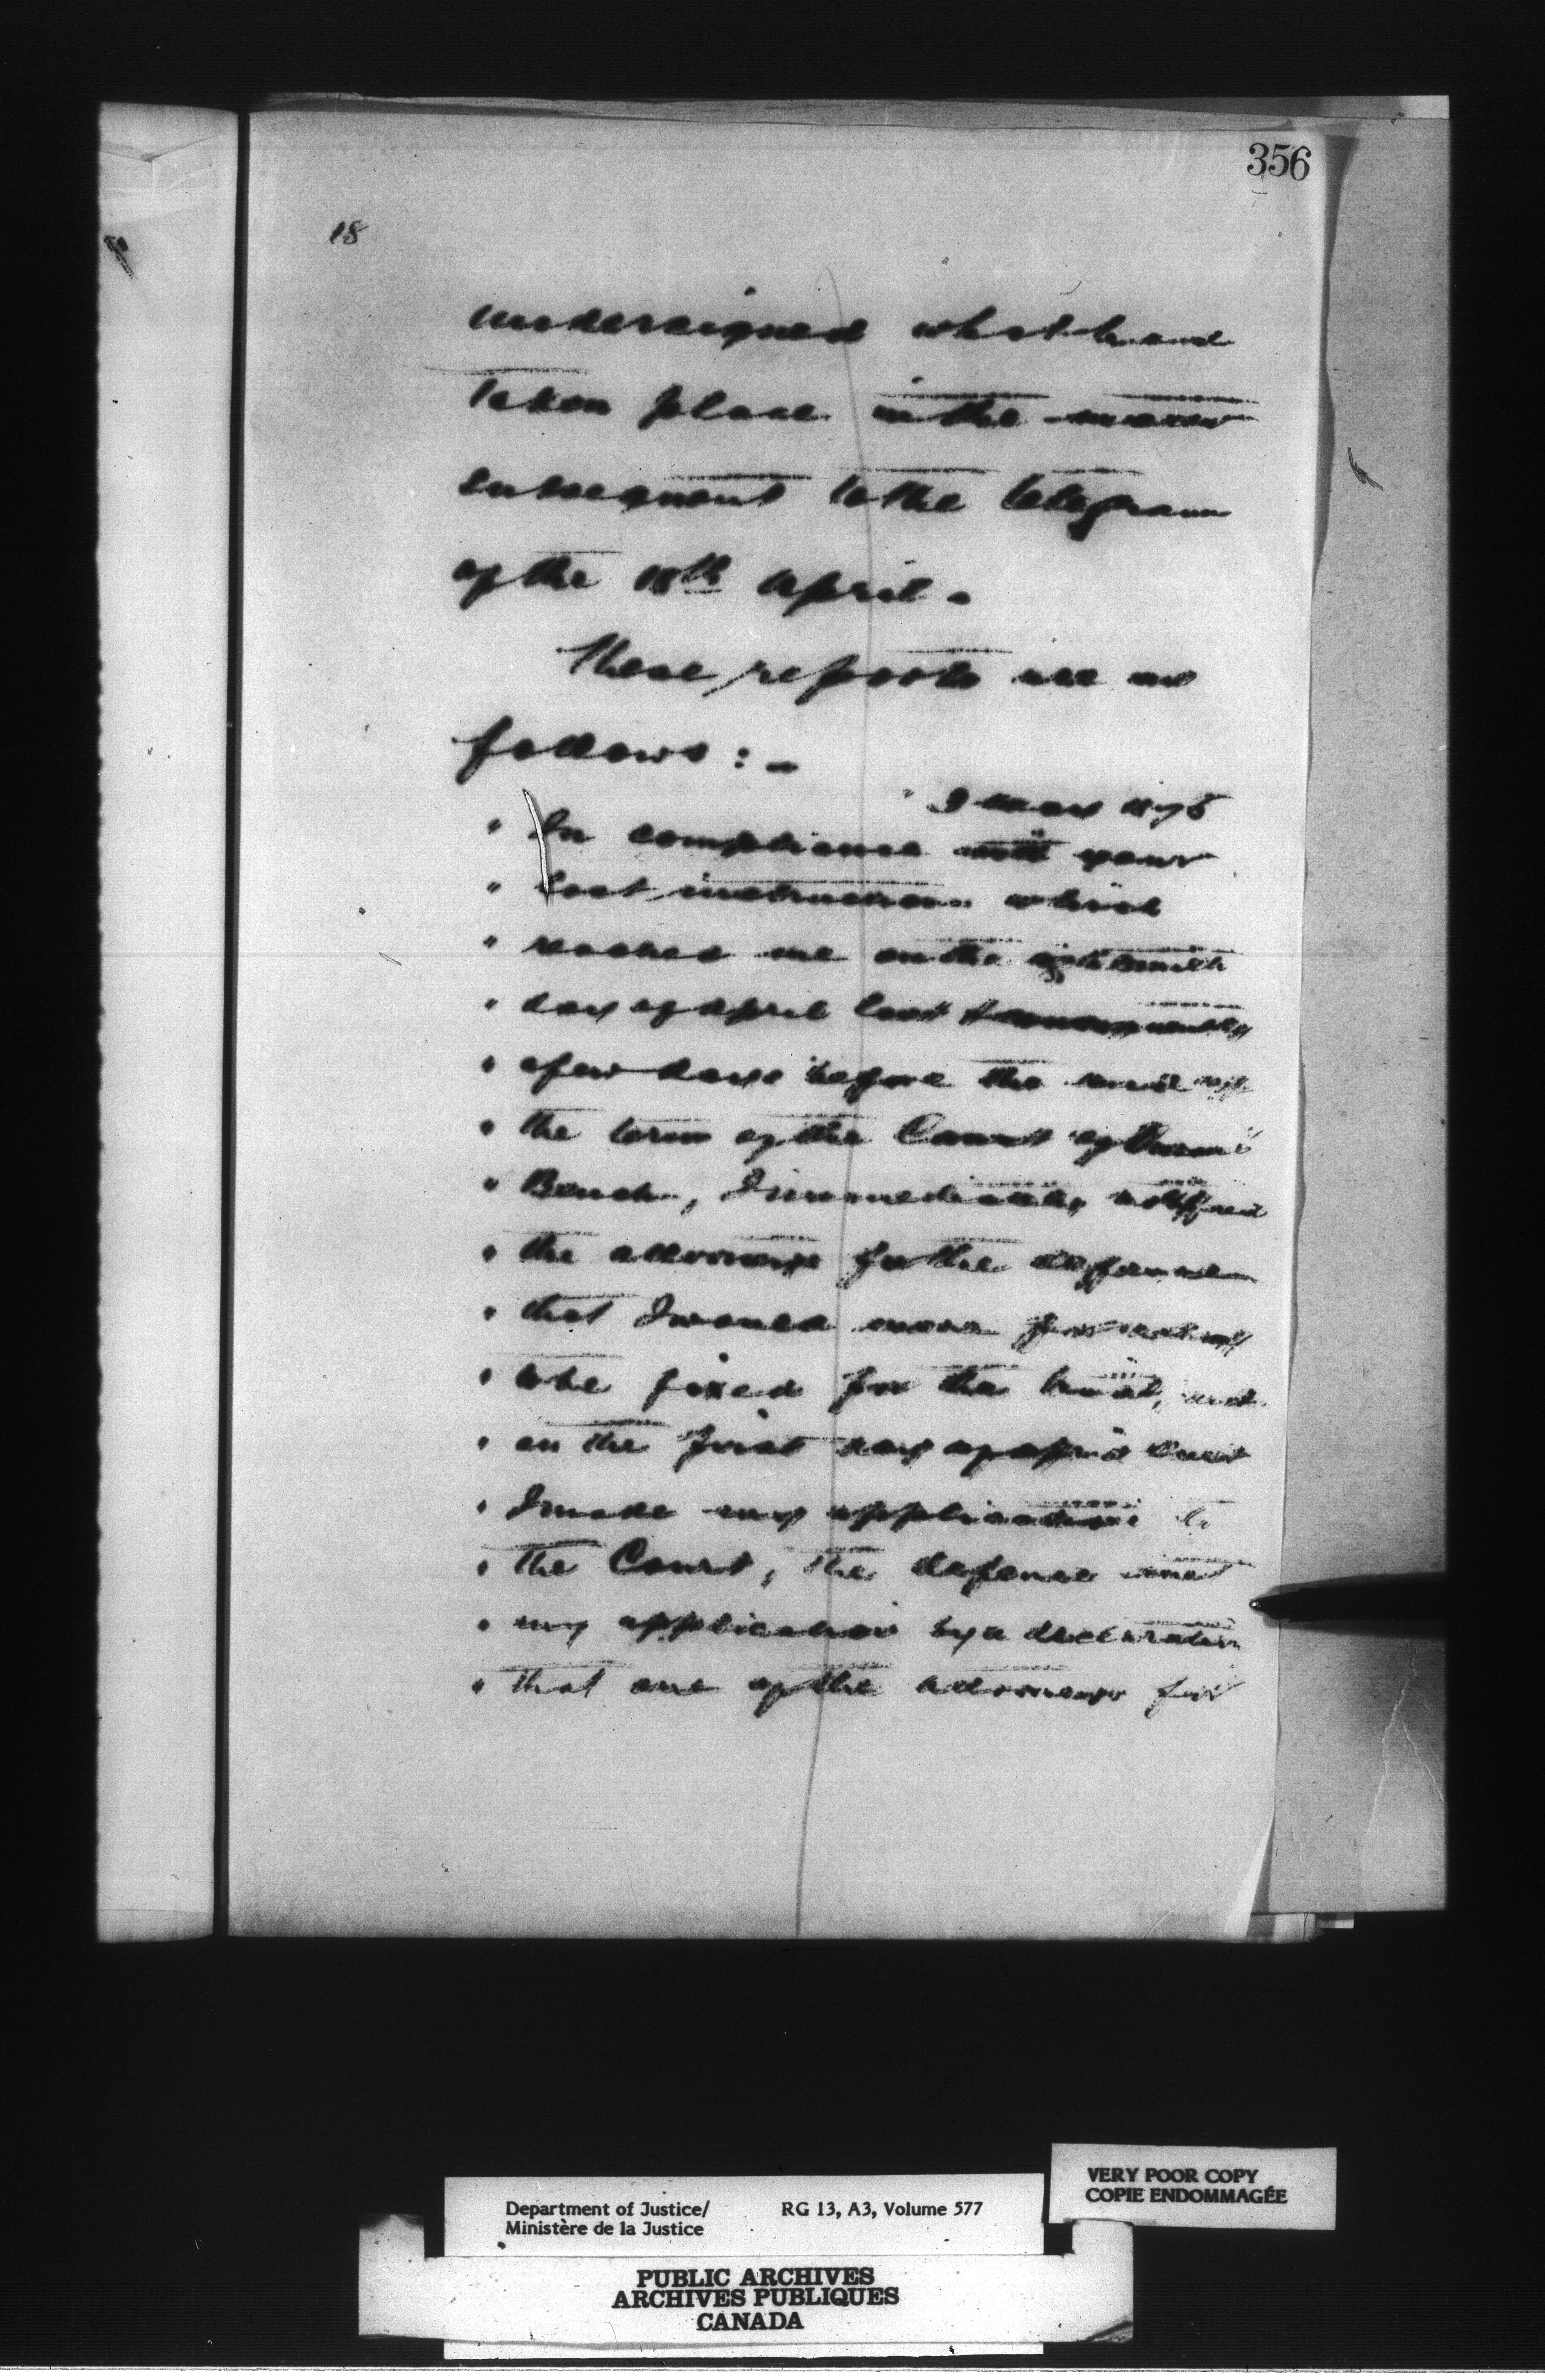 356
18
undersigned what had
taken place in the matter
subsequent to the telegram
of the 18th April -
These reports are as
follows : -
" 3 May 1875
" In compliance with your
" last instructions which
" reached me on the eighteenth
" day of April last & consequently
" a few days before the end of
" the term of the Court of Queen's
" Bench, I immediately notified
" the attorneys for the defence
" that I would move for a day
" to be fixed for the trial, and
" on the first day of April last
" I made my application to
" the Court, the defence met
" my application by a declaration
" that one of the attorneys for
VERY POOR COPY
COPIE ENDOMMAGÉE
Department of Justice/ RG 13, A3, Volume 577
Ministère de la Justice
PUBLIC ARCHIVES
ARCHIVES PUBLIQUES
CANADA